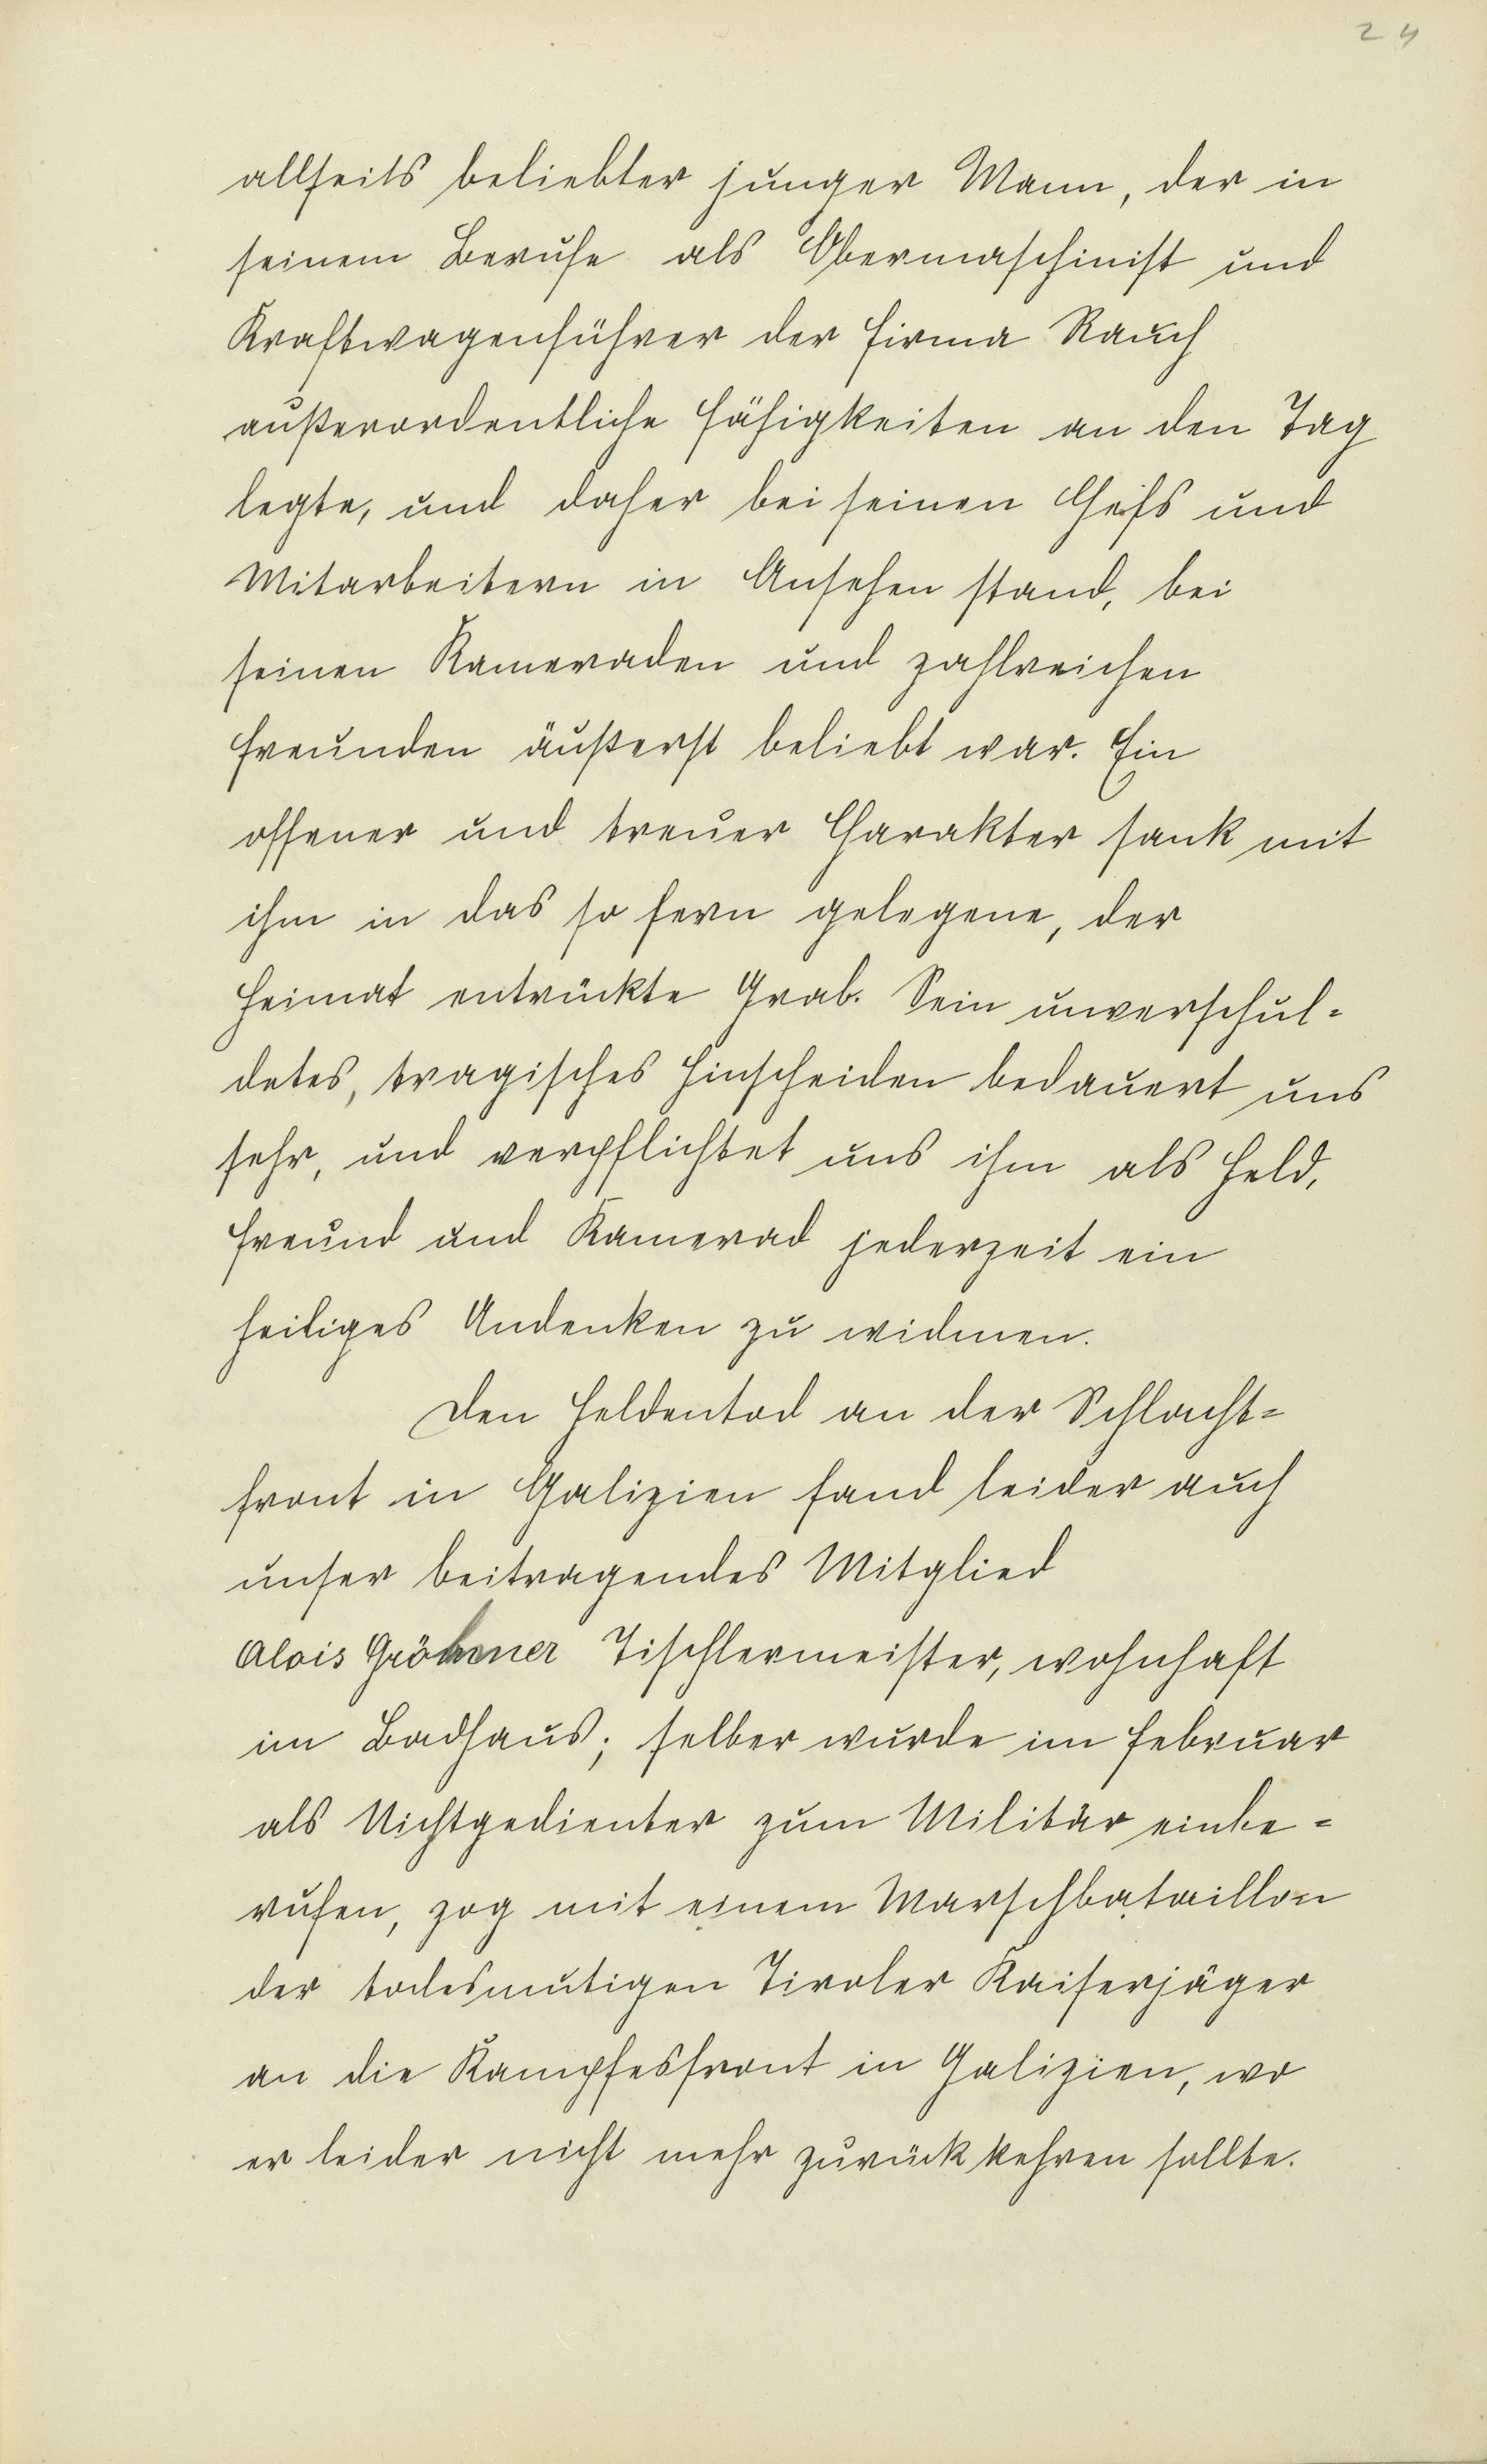 24
allseits beliebter junger Mann, der in
seinem Berufe als Obermaschinist und
Kraftwagenführer der Firma Rauch
außerordentliche Fähigkeiten an den Tag
legte, und daher bei seinen Chefs und
Mitarbeitern in Ansehen stand, bei
seinen Kameraden und zahlreichen
Freunden äußerst beliebt war. Ein
offener und treuer Charakter sank mit
ihm in das so fern gelegene, der
Heimat entrückte Grab. Sein unverschul=
detes, tragisches Hinscheiden bedauert uns
sehr, und verpflichtet uns ihm als Held,
Freund und Kamerad jederzeit ein
heiliges Andenken zu widmen.
Den Heldentod an der Schlacht=
front in Galizien fand leider auch
unser beitragendes Mitglied
Alois Tischlermeister, wohnhaft
im Badhaus; selber wurde im Februar
als Nichtgedienter zum Militär einbe=
rufen, zog mit einem Marschbataillon
der todesmutigen Tiroler Kaiserjäger
an die Kampfesfront in Galizien, wo
er leider nicht mehr zurückkehren sollte.